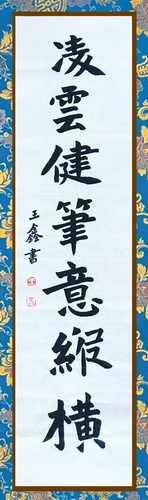 凌雲健筆意縱橫
王鑫書